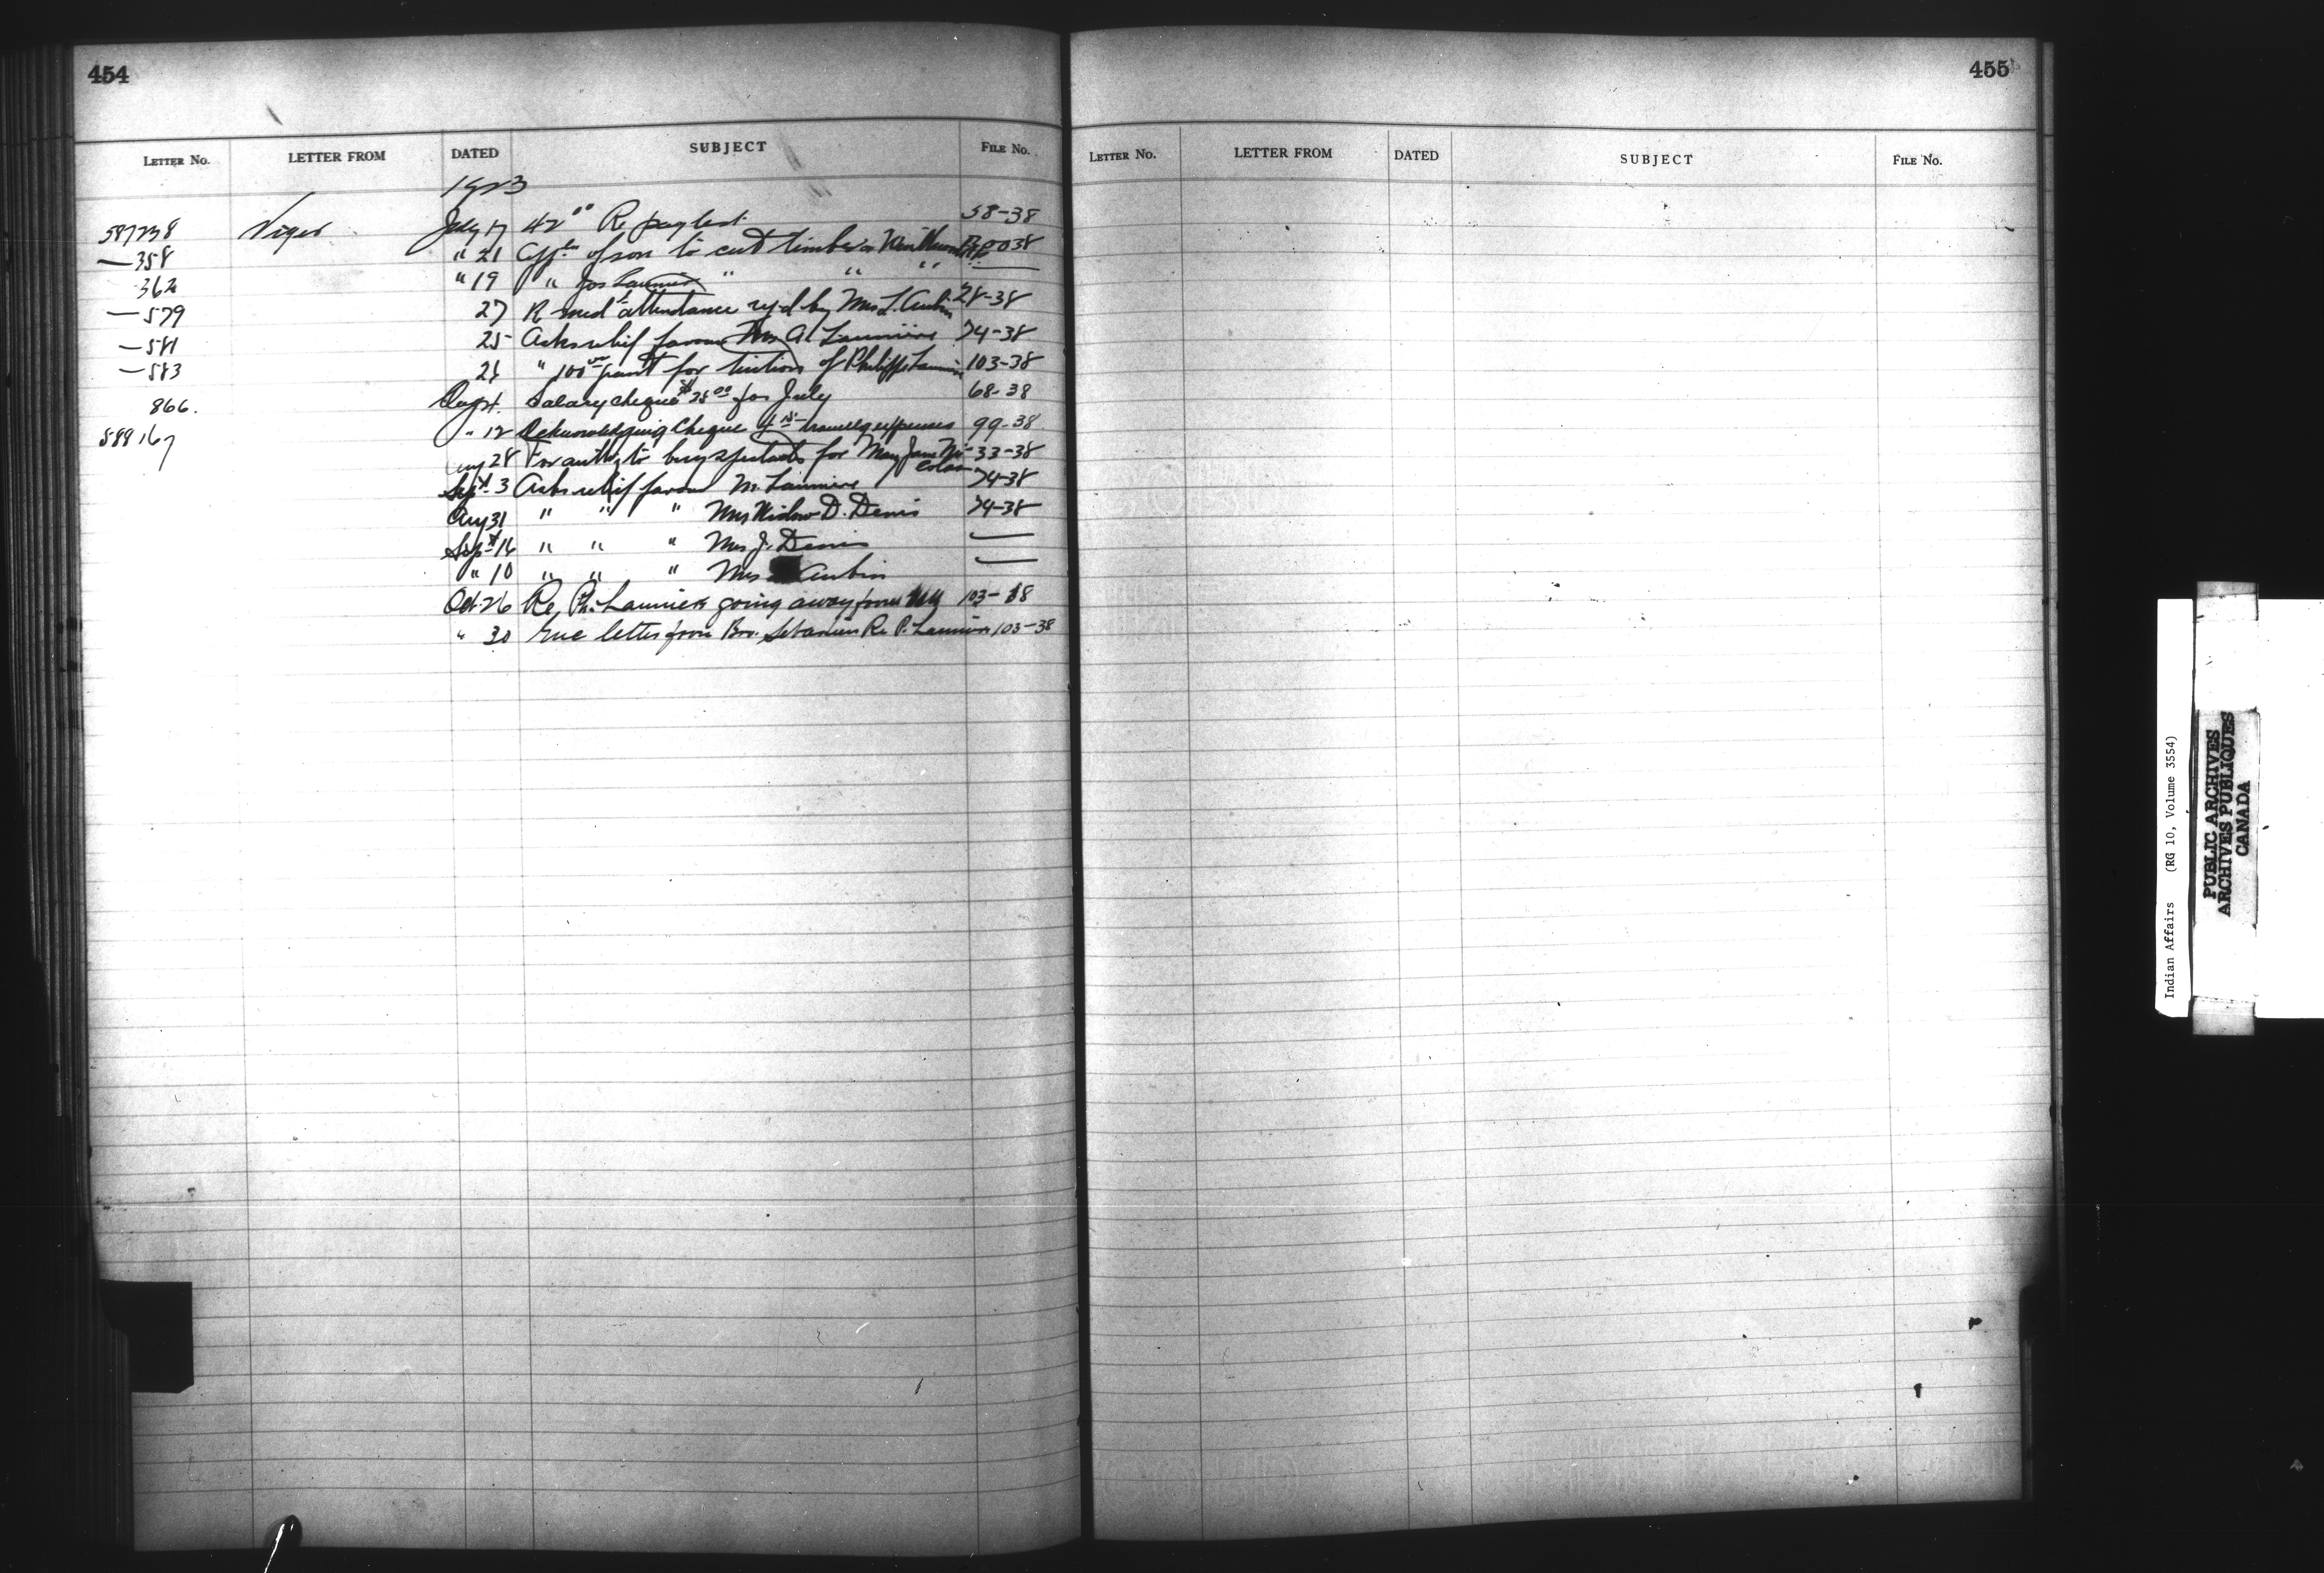 454
LETTER No. LETTER FROM DATED SUBJECT FILE No.
1923
587238 Viger July 17 42 00 Re paylist 58-38
— 358 " 21 of son to cut timber on 38
362 " 19 " Jos Launière " " " —
— 579 27 R med attendance by Mrs L. Aubin 28-38
— 581 25 Asks relief favour Mrs A Launiere 74-38
— 583 21 " 100 00 grant for tuition of Philippe Launière 103-38
866. salary cheque $25 00 for July 68-38
588167 " 12 Acknowledging Cheque expenses 99-38
Aug 28 For to buy for Mary Jane Ni- 33-38
colas
Sept 3 Asks relief favour M. Launiere 74-38
Aug 31 " " " Mrs Widow D. Denis 74-38
Sept 16 " " " Mrs J. Denis —
" 10 " " " Mrs Aubin —
Oct 26 Re, Ph. Launiere going away from 103-38
" 30 Enc letter from Bro. Re P. Launiere 103-38
455
LETTER No. LETTER FROM DATED SUBJECT FILE No.
Indian Affairs (RG 10, Volume 3554)
PUBLIC ARCHIVES
ARCHIVES PUBLIQUES
CANADA